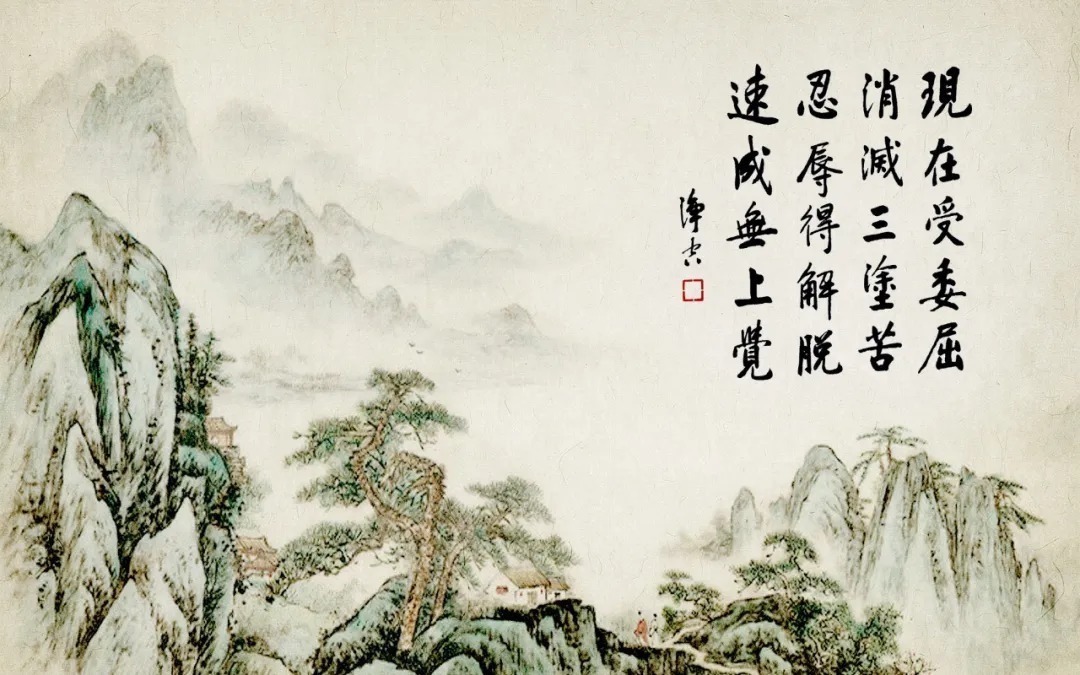 現在受委屈
消滅三塗苦
忍辱得解脫
速成無上覺
淨空